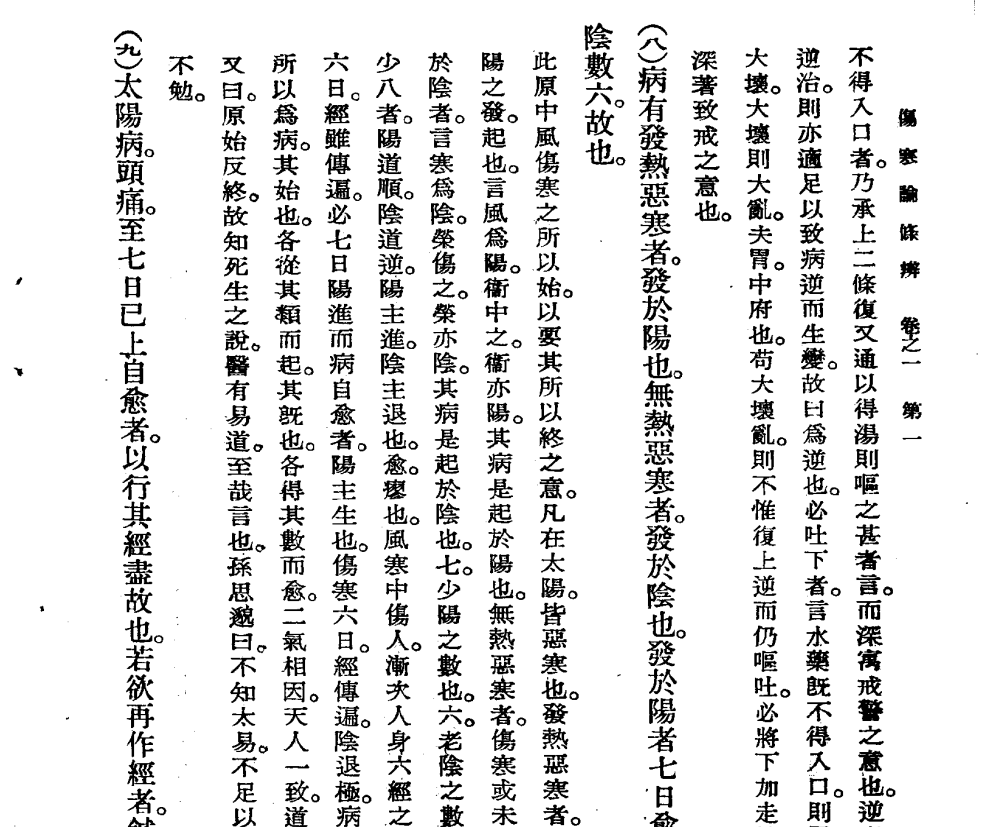 傷寒論條辨 卷之一 第一
不得入口者。乃承上二條復又通以得湯則嘔之甚者言。而深寓戒警之意也。逆
逆治。則亦適足以致病逆而生變。故曰爲逆也。必吐下者。言水藥旣不得入口。則
大壞。大壞則大亂。夫胃。中府也。苟大壞亂。則不惟復上逆而仍嘔吐。必將下加走
深著致戒之意也。
(八)病有發熱惡寒者。發於陽也。無熱惡寒者。發於陰也。發於陽者七日愈
陰數六。故也。
此原中風傷寒之所以始。以要其所以終之意。凡在太陽。皆惡寒也。發熱惡寒者。
陽之發。起也。言風爲陽。衞中之。衞亦陽。其病是起於陽也。無熱惡寒者。傷寒或未
於陰者。言寒爲陰。榮傷之。榮亦陰。其病是起於陰也。七少陽之數也。六。老陰之數
少八者。陽道順。陰道逆。陽主進。陰主退也。愈。瘳也。風寒中傷人。漸次人身六經之
六日。經雖傳遍。必七日陽進而病自愈者。陽主生也。傷寒六日。經傳遍。陰退極。病
所以爲病。其始也。各從其類而起。其旣也。各得其數而愈。二氣相因。天人一致。道
又曰。原始反終。故知死生之說。醫有易道。至哉言也。孫思邈曰。不知太易。不足以
不勉。
(九)太陽病。頭痛。至七日已上自愈者。以行其經盡故也。若欲再作經者。